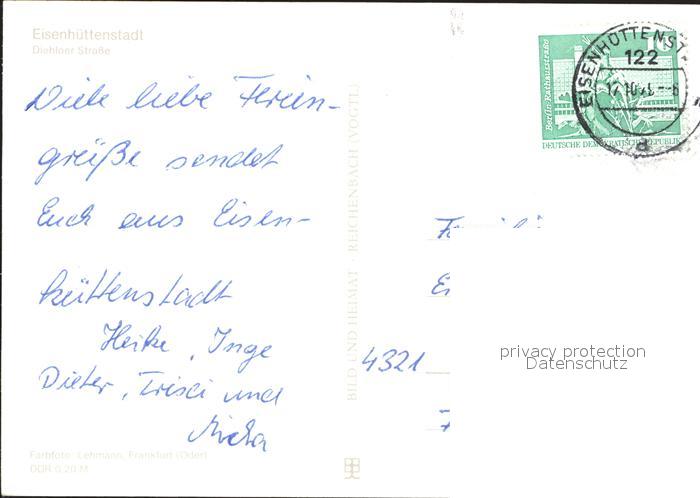 Eisenhüttenstadt
Diehloer Straße
Viele liebe Ferien-
grüße sendet
Euch aus Eisen-
hüttenstadt
Heike, Inge
Dieter, und
Farbfoto: Lehmann, Frankfurt (Oder)
DDR 0,20 M
BILD UND HEIMAT · REICHENBACH (VOGTL)
Berlin, Rathausstraße
10
DEUTSCHE DEMOKRATISCHE REPUBLIK
EISENHÜTTENST
122
a
4321
privacy protection
Datenschutz